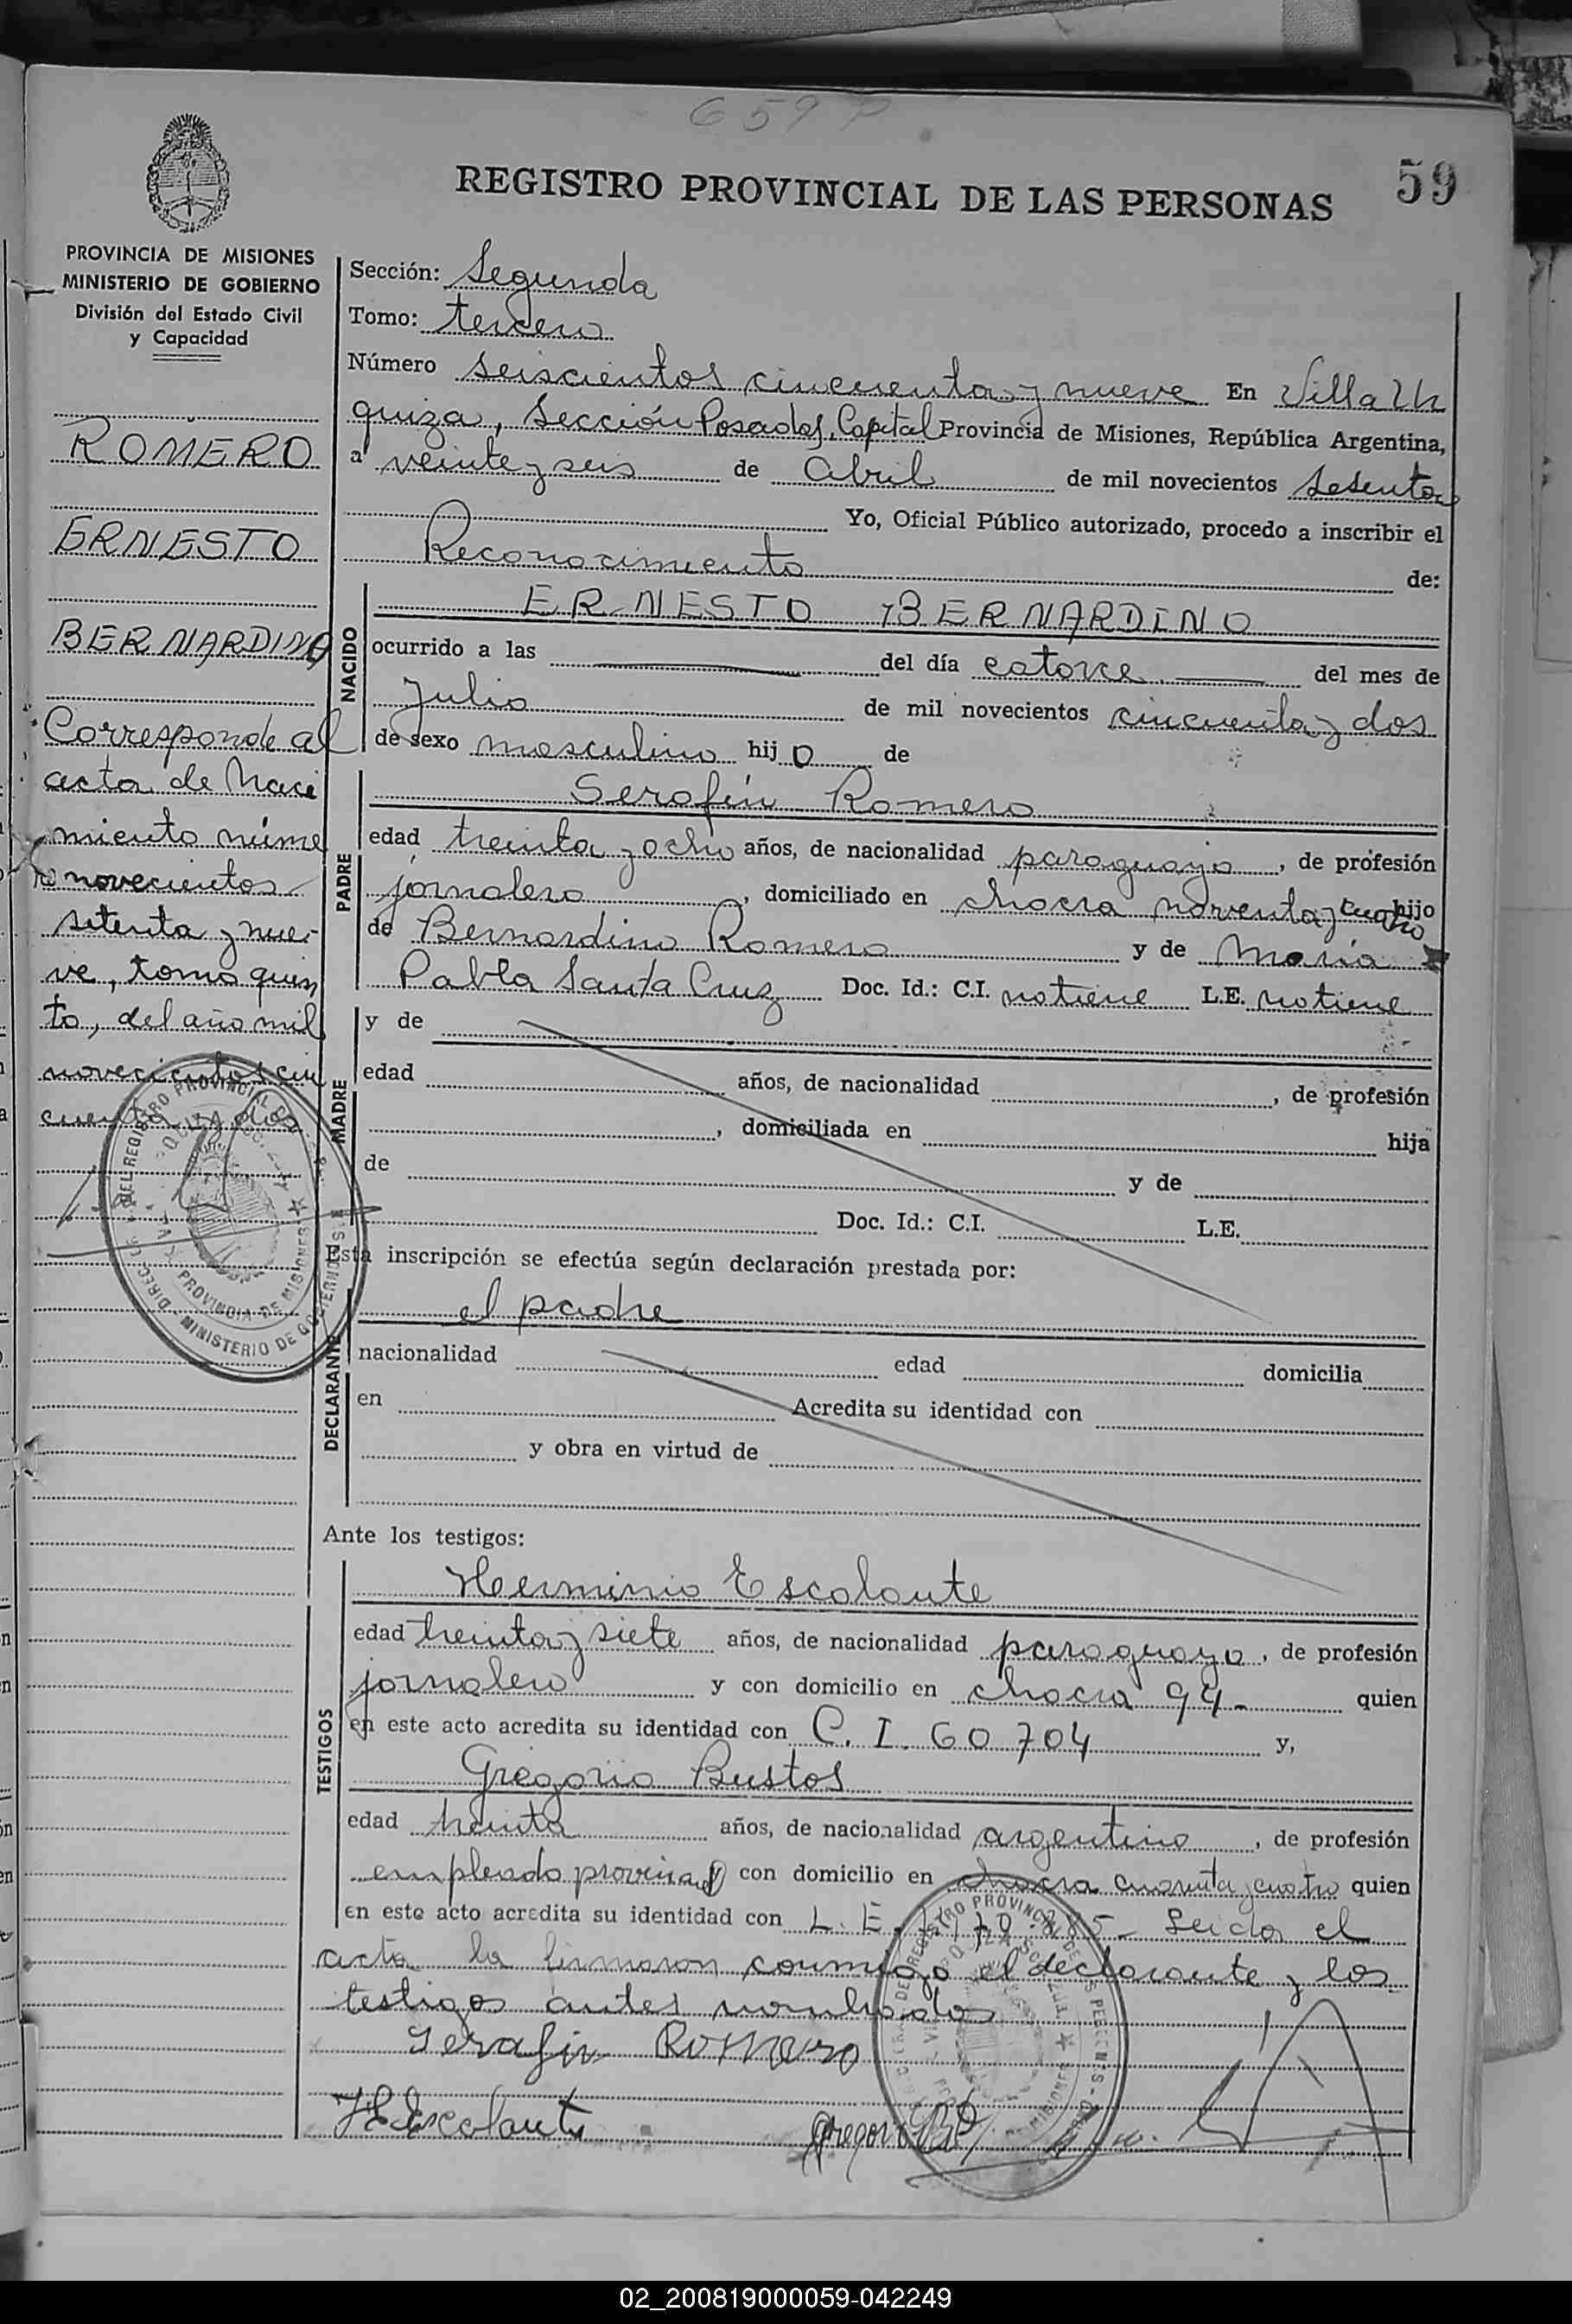 659 P
59
REGISTRO PROVINCIAL DE LAS PERSONAS
PROVINCIA DE MISIONES
MINISTERIO DE GOBIERNO
División del Estado Civil
y Capacidad
ROMERO
ERNESTO
BERNARDINO
Corresponde al
acta de Naci
miento núme
ro novecientos
setenta y nue-
ve, tomo quin
to, del año mil
novecientos cin
cuenta y dos
Sección: Segunda
Tomo: tercero
Número seiscientos cincuenta y nueve En Villa Ur
quiza, Sección Posadas, Capital Provincia de Misiones, República Argentina,
a veinte y seis de Abril de mil novecientos sesenta
Yo, Oficial Público autorizado, procedo a inscribir el
Reconocimiento de:
NACIDO
ERNESTO BERNARDINO
ocurrido a las del día catorce del mes de
Julio de mil novecientos cincuenta y dos
de sexo masculino hijo de
PADRE
Serafín Romero
edad treinta y ocho años, de nacionalidad paraguayo, de profesión
jornalero, domiciliado en chacra noventa y cuatro hijo
de Bernardino Romero y de María
Pabla Santa Cruz Doc. Id.: C.I. no tiene L.E. no tiene
MADRE
y de
edad años, de nacionalidad , de profesión
, domiciliada en hija
de y de
Doc. Id.: C.I. L.E.
Esta inscripción se efectúa según declaración prestada por:
DECLARANTE
el padre
nacionalidad edad domicilia
en Acredita su identidad con
y obra en virtud de
Ante los testigos:
TESTIGOS
Herminio Escalante
edad treinta y siete años, de nacionalidad paraguayo, de profesión
jornalero y con domicilio en chacra 94- quien
en este acto acredita su identidad con C. I. 60704 y,
Gregorio Bustos
edad treinta años, de nacionalidad argentino, de profesión
empleado provincial y con domicilio en chacra cuarenta y cuatro quien
en este acto acredita su identidad con L. E. Leida el
acta la firmaron conmigo el declarante y los
testigos antes nombrados
Serafin Romero
H Escalante
Gregorio
PROVINCIA DE MISIONES
MINISTERIO DE GOBIERNO
02_200819000059-042249